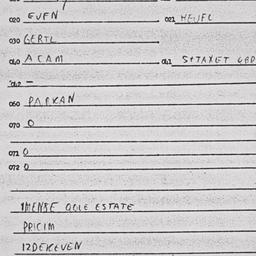 020 EVEN 021 HEUFL
030 GERTL
0L0 ACAM 0L1 S+TAXET
0L2 -
060 PAPKAN
070 O
071 0
072 0
IMENSE OOLE ESTATE
PRICIM
IZDEKEVEN